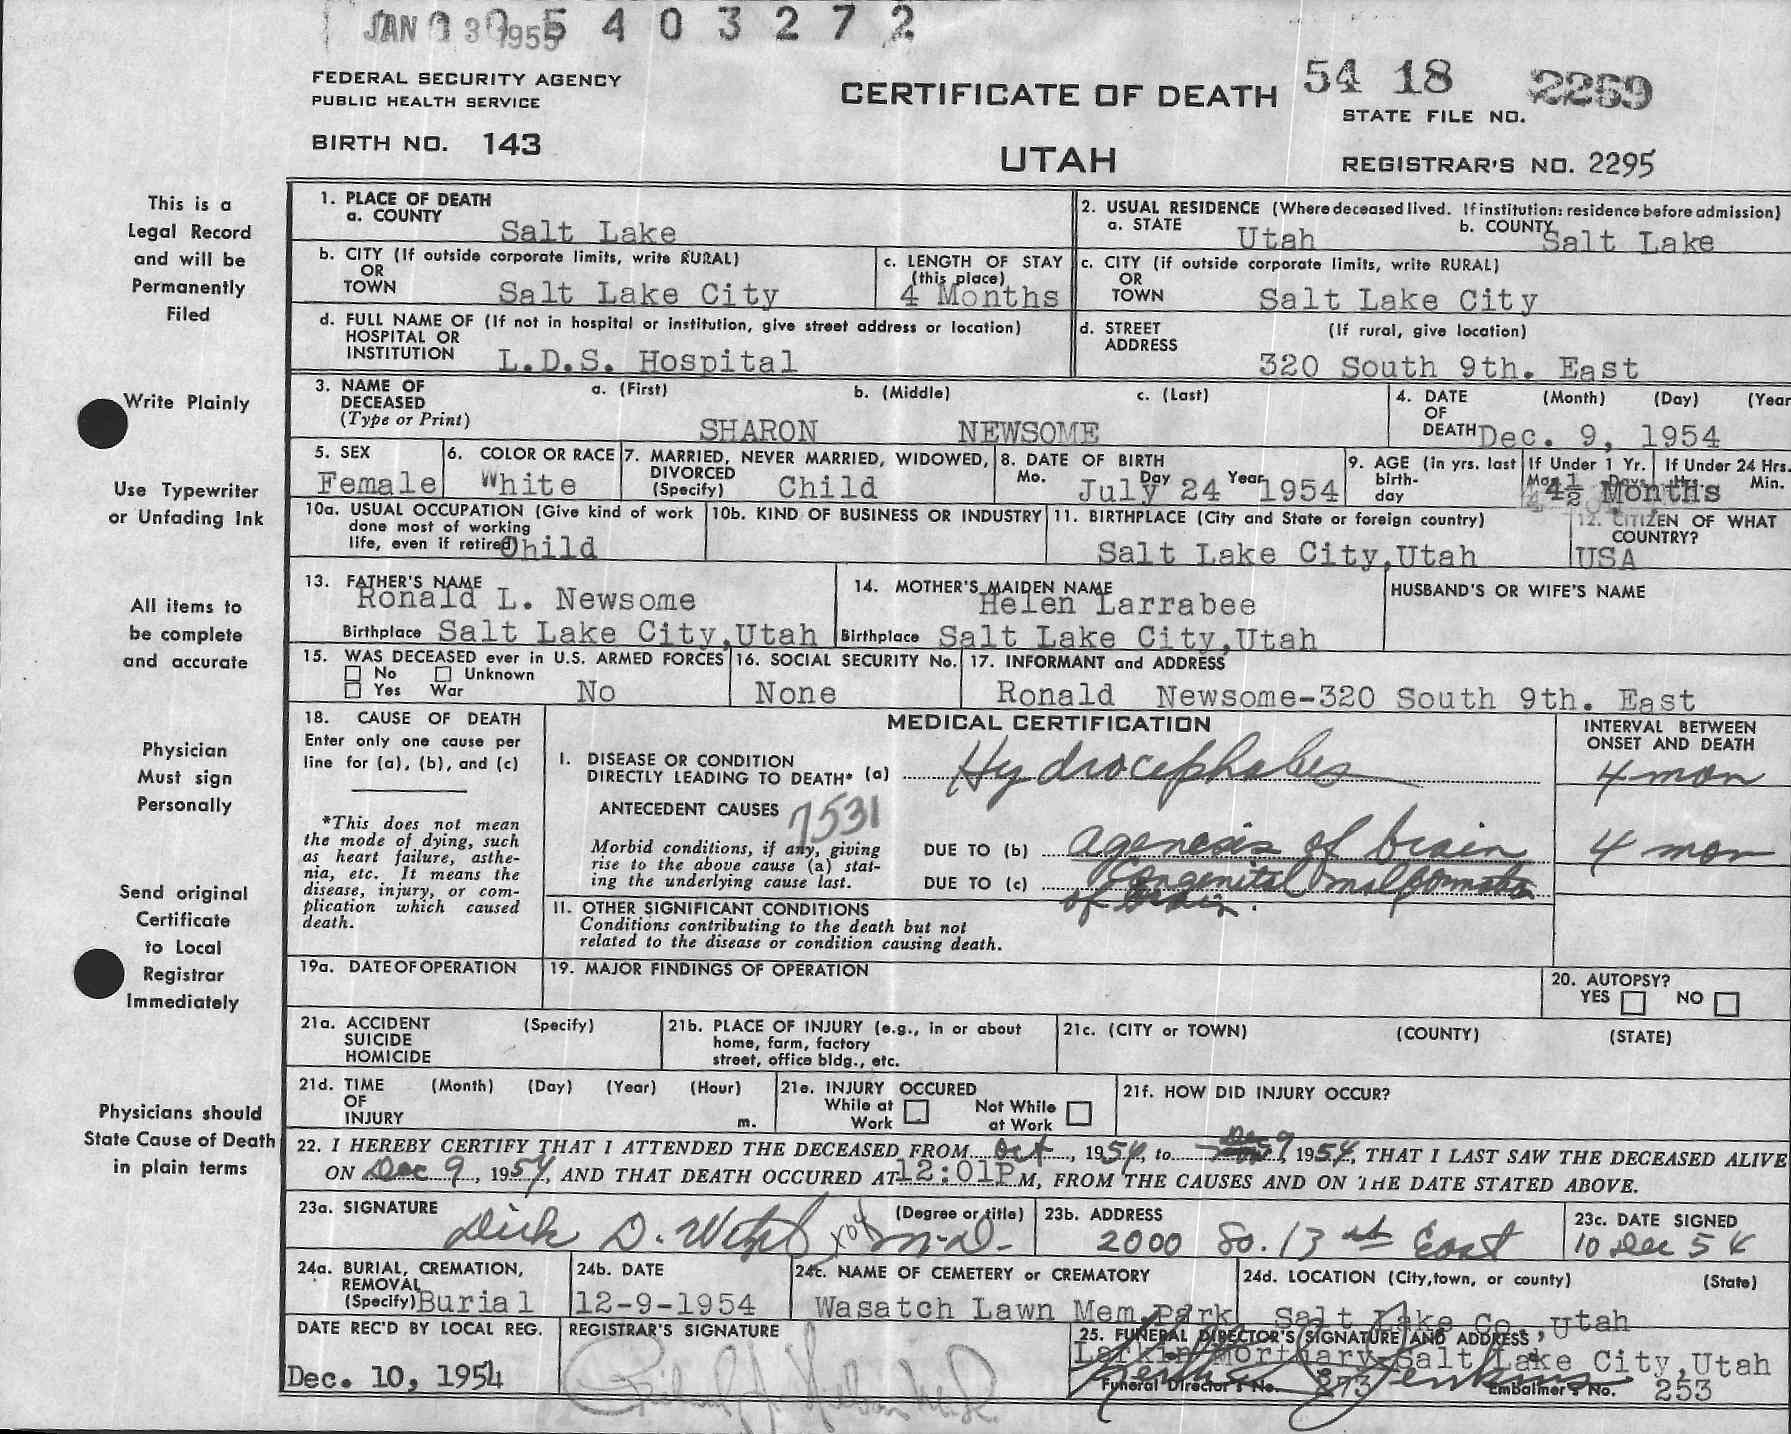 JAN 1955 5 4 0 3 2 7 2
FEDERAL SECURITY AGENCY
PUBLIC HEALTH SERVICE
BIRTH NO. 143
CERTIFICATE OF DEATH
UTAH
54 18 2269
STATE FILE NO.
REGISTRAR'S NO. 2295
This is a
Legal Record
and will be
Permanently
Filed
Write Plainly
Use Typewriter
or Unfading Ink
All items to
be complete
and accurate
Physician
Must sign
Personally
Send original
Certificate
to Local
Registrar
Immediately
Physicians should
State Cause of Death
in plain terms
1. PLACE OF DEATH
a. COUNTY
Salt Lake
2. USUAL RESIDENCE (Where deceased lived. If institution: residence before admission)
a. STATE Utah b. COUNTY Salt Lake
b. CITY (If outside corporate limits, write RURAL)
OR
TOWN Salt Lake City
c. LENGTH OF STAY
(this place)
4 Months
c. CITY (if outside corporate limits, write RURAL)
OR
TOWN Salt Lake City
d. FULL NAME OF (If not in hospital or institution, give street address or location)
HOSPITAL OR
INSTITUTION L.D.S. Hospital
d. STREET (If rural, give location)
ADDRESS
320 South 9th. East
3. NAME OF a. (First) b. (Middle) c. (Last)
DECEASED
(Type or Print) SHARON NEWSOME
4. DATE (Month) (Day) (Year
OF
DEATH Dec. 9, 1954
5. SEX
Female
6. COLOR OR RACE
White
7. MARRIED, NEVER MARRIED, WIDOWED,
DIVORCED
(Specify) Child
8. DATE OF BIRTH
Mo. Day Year
July 24 1954
9. AGE (in yrs. last
birth-
day
If Under 1 Yr.
Mos. Days
If Under 24 Hrs.
Hrs. Min.
4½ Months
10a. USUAL OCCUPATION (Give kind of work
done most of working
life, even if retired) Child
10b. KIND OF BUSINESS OR INDUSTRY
11. BIRTHPLACE (City and State or foreign country)
Salt Lake City,Utah
12. CITIZEN OF WHAT
COUNTRY?
USA
13. FATHER'S NAME
Ronald L. Newsome
Birthplace Salt Lake City,Utah
14. MOTHER'S MAIDEN NAME
Helen Larrabee
Birthplace Salt Lake City,Utah
HUSBAND'S OR WIFE'S NAME
15. WAS DECEASED ever in U.S. ARMED FORCES
No Unknown
Yes War No
16. SOCIAL SECURITY No.
None
17. INFORMANT and ADDRESS
Ronald Newsome-320 South 9th. East
18. CAUSE OF DEATH
Enter only one cause per
line for (a), (b), and (c)
*This does not mean
the mode of dying, such
as heart failure, asthe-
nia, etc. It means the
disease, injury, or com-
plication which caused
death.
MEDICAL CERTIFICATION
INTERVAL BETWEEN
ONSET AND DEATH
I. DISEASE OR CONDITION
DIRECTLY LEADING TO DEATH* (a) Hydrocephalus 4 mon
ANTECEDENT CAUSES 7531
Morbid conditions, if any, giving
rise to the above cause (a) stat-
ing the underlying cause last.
DUE TO (b) agenesis of brain 4 mon
DUE TO (c) Congenital malformation
of brain.
II. OTHER SIGNIFICANT CONDITIONS
Conditions contributing to the death but not
related to the disease or condition causing death.
19a. DATE OF OPERATION
19. MAJOR FINDINGS OF OPERATION
20. AUTOPSY?
YES NO
21a. ACCIDENT (Specify)
SUICIDE
HOMICIDE
21b. PLACE OF INJURY (e.g., in or about
home, farm, factory
street, office bldg., etc.
21c. (CITY or TOWN) (COUNTY) (STATE)
21d. TIME (Month) (Day) (Year) (Hour)
OF
INJURY m.
21e. INJURY OCCURED
While at Work
Not While at Work
21f. HOW DID INJURY OCCUR?
22. I HEREBY CERTIFY THAT I ATTENDED THE DECEASED FROM Oct, 1954, to Dec 9, 1954, THAT I LAST SAW THE DECEASED ALIVE
ON Dec 9, 1954, AND THAT DEATH OCCURED AT 12:01P M, FROM THE CAUSES AND ON THE DATE STATED ABOVE.
23a. SIGNATURE (Degree or title)
Dick D. M.D.
23b. ADDRESS
2000 So. 13th East
23c. DATE SIGNED
10 Dec 54
24a. BURIAL, CREMATION,
REMOVAL
(Specify) Burial
24b. DATE
12-9-1954
24c. NAME OF CEMETERY or CREMATORY
Wasatch Lawn Mem.Park
24d. LOCATION (City,town, or county) (State)
Salt Lake Co., Utah
DATE REC'D BY LOCAL REG.
Dec. 10, 1954
REGISTRAR'S SIGNATURE
25. FUNERAL DIRECTOR'S SIGNATURE AND ADDRESS
Larkin Mortuary-Salt Lake City,Utah
Funeral Director's No. 373 Embalmer's No. 253